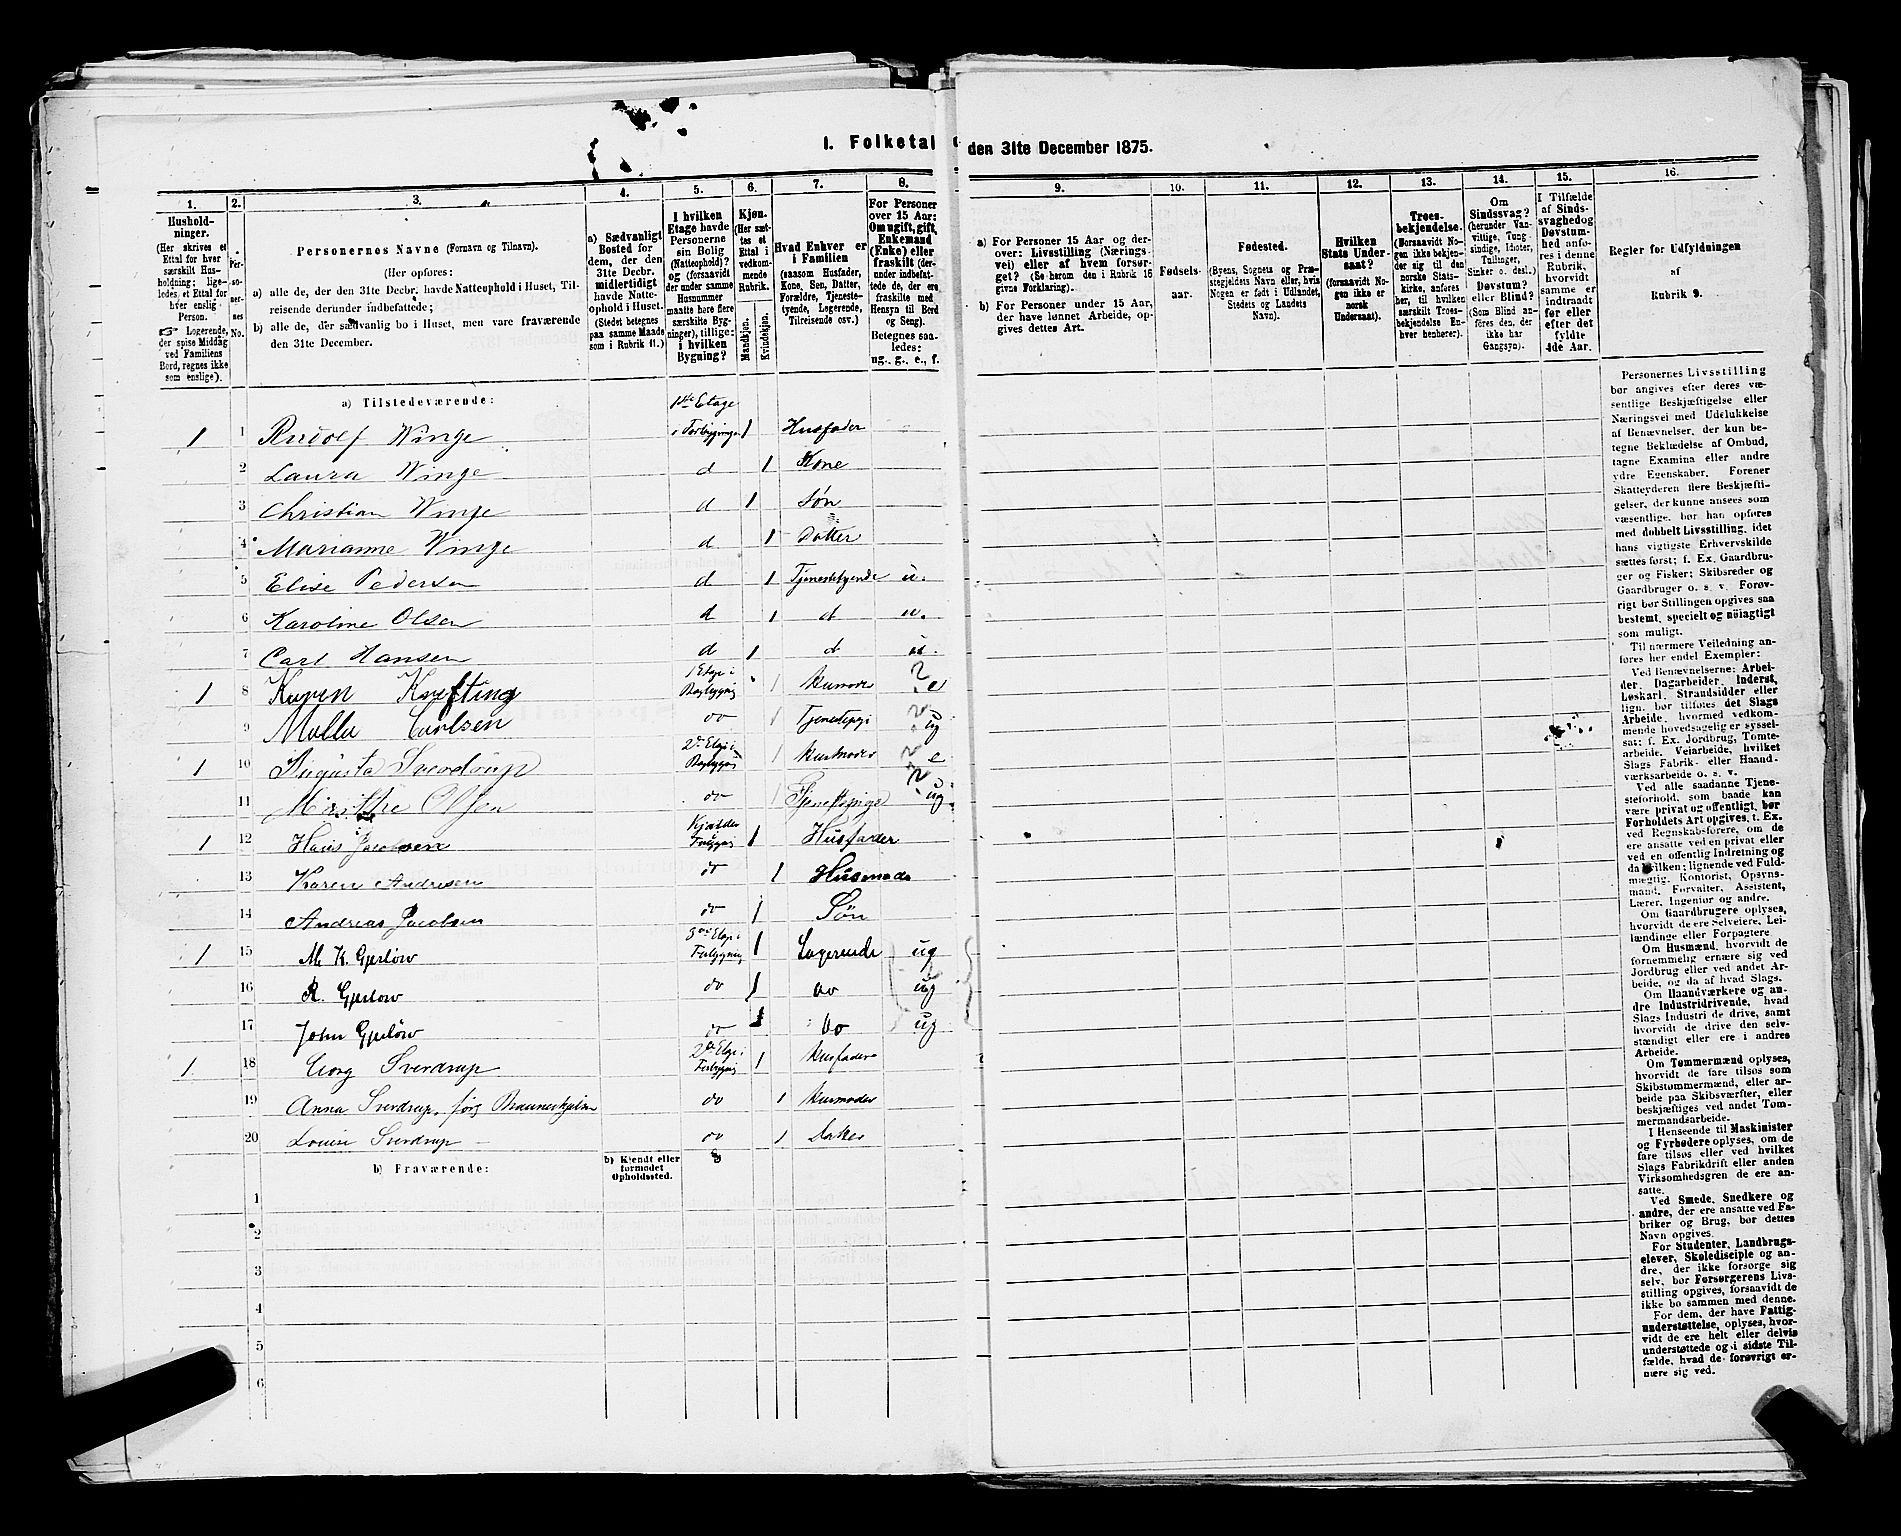 I. Folketal
1.
Husholdninger.
(Her skrives et
Ettal for hver
særskilt Husholdning;
ligeledes, et Ettal for
hver enslig
Person.
Logerende,
der spise Middag
ved Familiens
Bord, regnes ikke
som enslige).
2.
Personernes
No.
3.
Personernes Navne (Fornavn og Tilnavn).
(Her opføres:
a) alle de, der den 31te Decbr. havde Natteophold i Huset, Tilreisende
derunder indbefattede;
b) alle de, der sædvanlig bo i Huset, men vare fraværende
den 31te December.
4.
a) Sædvanligt
Bosted for
dem, der den
31te Decbr.
midlertidigt
havde Natteophold
i Huset.
(Stedet betegnes
paa samme Maade
som i Rubrik 11.)
5.
I hvilken
Etage havde
Personerne
sin Bolig
(Natteophold)?
og (forsaavidt
der under samme
Husnummer
maatte høre flere
særskilte Bygninger),
tillige:
i hvilken
Bygning?
6.
Kjøn.
(Her sættes
et
Ettal i
vedkommende
Rubrik.
Mandkjøn.
Kvindekjøn.
7.
Hvad Enhver er
i Familien
(saasom Husfader,
Kone, Søn, Datter,
Forældre, Tjenestetyende,
Logerende,
Tilreisende osv.)
8.
For Personer
over 15 Aar:
Om ugift, gift,
Enkemand
(Enke) eller
fraskilt (derunder
indbefattede
de, der ere
fraskilte med
Hensyn til Bord
og Seng).
Betegnes saaledes:
ug., g., e., f.
a) Tilstedeværende:
1 1 Rudolf Winge 1ste Etage i Forbygning 1 Husfader
2 Laura Winge d 1 Kone
3 Christian Winge d 1 Søn
4 Marianne Winge d 1 Datter
5 Elise Pedersen d 1 Tjenestetyende u.
6 Karoline Olsen d 1 d u.
7 Carl Hansen d 1 d u.
1 8 Karen Krefting 1 Etage i Bagbygnig 1 Husmoder ? e
9 Malla Carlsen do 1 Tjenestepige ? ug
1 10 Augusta Sverdrup 2den Etage i Bagbygnig 1 Husmoder ? e
11 Olsen do 1 Tjenestepige ? ug
1 12 Hans Jacobsen Kjælder Forbygnig 1 Husfader
13 Karen Andresen do 1 Husmoder
14 Andreas Jacobsen do 1 Søn
1 15 M. K. Gjerløw 3die Etage i Forbygnig 1 Logerende ug
16 R. Gjerløw do 1 Do ug
17 John Gjerløw do 1 Do ug
1 18 Georg Sverdrup 2den Etage i Forbygnig 1 Husfader
19 Anna Sverdrup, do 1 Husmoder
20 Louise Sverdrup do 1 Datter
b) Fraværende:
b) Kjendt eller
formodet
Opholdssted.
1
2
3
4
5
6
den 31te December 1875.
9.
a) For Personer 15 Aar og derover:
Livsstilling (Næringsvei)
eller af hvem forsørget?
(Se herom den i Rubrik 16
givne Forklaring).
b) For Personer under 15 Aar,
der have lønnet Arbeide, opgives
dettes Art.
10.
Fødselsaar.
11.
Fødested.
(Byens, Sognets og Præstegjeldets
Navn eller, hvis
Nogen er født i Udlandet,
Stedets og Landets
Navn).
12.
Hvilken
Stats Undersaat?
(forsaavidt Nogen
ikke er
norsk
Undersaat).
13.
Troesbekjendelse.
(Forsaavidt Nogen
ikke bekjender
sig til den
norske Statskirke,
anføres
her, til hvilken
særskilt Troesbekjendelse
Enhver
henhører).
14.
Om
Sindssvag?
(herunder Vanvittige,
Tungsindige,
Idioter,
Tullinger,
Sinker o. desl.)
Døvstum?
eller Blind?
(Som Blind anføres
den, der
ikke har
Gangsyn).
15.
I Tilfælde
af Sindssvaghed
og
Døvstumhed
anføres
i denne
Rubrik,
hvorvidt
samme er
indtraadt
før eller
efter det
fyldte
4de Aar.
16.
Regler for Udfyldningen
af
Rubrik 9.
Personernes Livsstilling
bør angives efter deres væsentlige
Beskjæftigelse eller
Næringsvei med Udelukkelse
af Benævnelser, der kun betegne
Beklædelse af Ombud,
tagne Examina eller andre
ydre Egenskaber. Forener
Skatteyderen flere Beskjæftigelser,
der kunne ansees som
væsentlige, bør han opføres
med dobbelt Livsstilling, idet
hans vigtigste Erhvervskilde
sættes først; f. Ex. Gaardbruger
og Fisker; Skibsreder og
Gaardbruger o. s. v. Forøvrigt
bør Stillingen opgives saa
bestemt, specielt og nøiagtigt
som muligt.
Til nærmere Veiledning anføres
her endel Exempler:
Ved Benævnelserne: Arbeider,
Dagarbeider, Inderst,
Løskarl, Strandsidder eller
lign. bør tilføres det Slags
Arbeide, hvormed vedkommende
hovedsagelig er sysselsat;
f. Ex. Jordbrug, Tomtearbeide,
Veiarbeide, hvilket
Slags Fabrik- eller Haandværksarbeide
o. s. v.
Ved alle saadanne Tjenesteforhold,
som baade kan
være privat og offentligt, bør
Forholdets Art opgives, t. Ex.
ved Regnskabsførere, om de
ere ansatte ved en privat eller
ved en offentlig Indretning og
da hvilken; lignende ved Fuldmægtig,
Kontorist, Opsynsmand,
Forvalter, Assistent,
Lærer, Ingeniør og andre.
Om Gaardbrugere oplyses,
hvorvidt de ere Selveiere, Leilændinge
eller Forpagtere.
Om Husmænd, hvorvidt de
fornemmelig ernære sig ved
Jordbrug eller ved andet Arbeide,
og da af hvad Slags.
Om Haandværkere og andre
Industridrivende, hvad
Slags Industri de drive, samt
hvorvidt de drive den selvstændigt
eller ere i andres
Arbeide.
Om Tømmermænd oplyses,
hvorvidt de fare tilsøs som
Skibstømmermænd, eller arbeide
paa Skibsværfter, eller
beskjæftiges ved andet Tømmermandsarbeide.
I Henseende til Maskinister
og Fyrbødere oplyses, om de
fare tilsøs eller ved hvilket
Slags Fabrikdrift eller anden
Virksomhedsgren de ere ansatte.
Ved Smede, Snedkere og
andre, der ere ansatte ved Fabriker
og Brug, bør dettes
Navn opgives.
For Studenter, Landbrugselever,
Skoledisciple og andre,
der ikke forsørge sig
selv, bør Forsørgerens Livsstilling
opgives, forsaavidt de
ikke bo sammen med denne.
For dem, der have Fattigunderstøttelse,
oplyses, hvorvidt
de ere helt eller delvis
understøttede og i sidste Tilfælde,
hvad de forøvrigt ernære
sig ved.